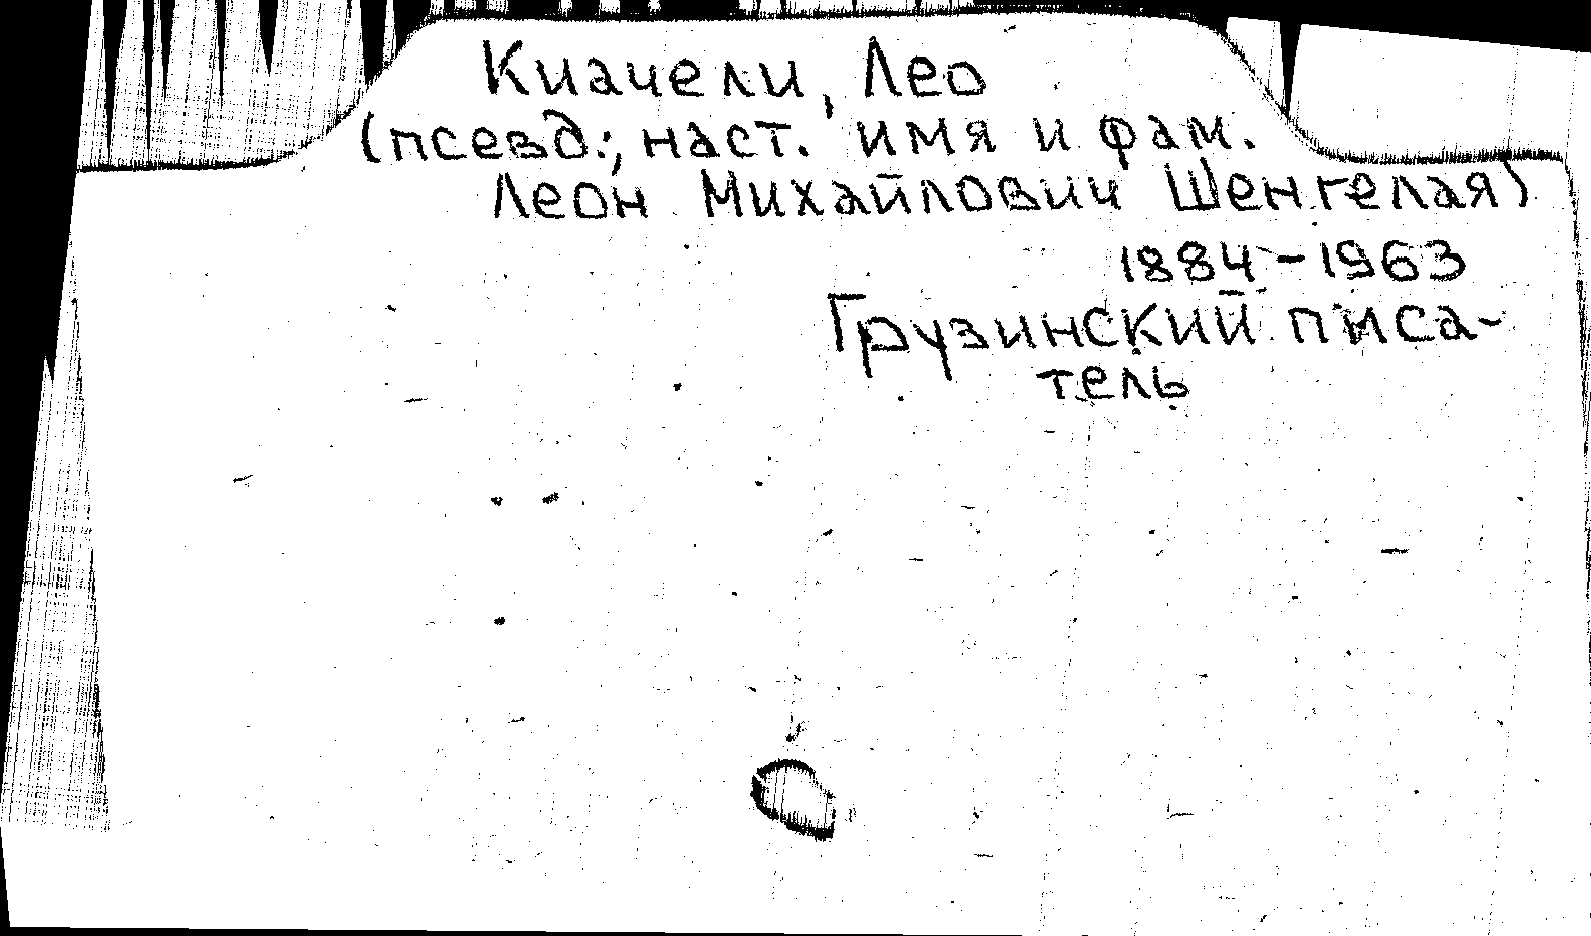 Киачели, Лео
(псевд.; наст. имя и фам.
Леон Михайлович Шенгелая)
1884-1963
Грузинский писа-
тель